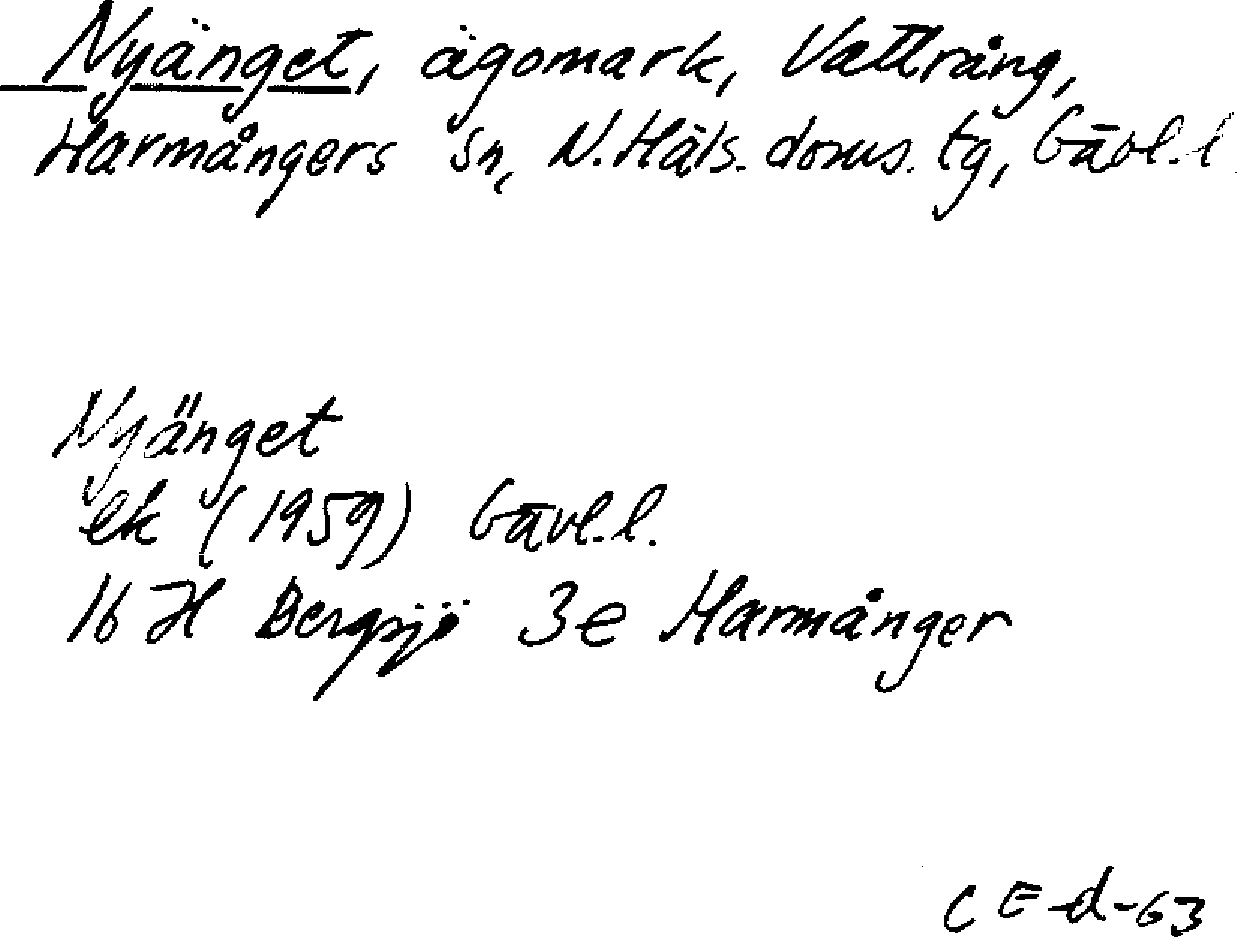 Nyänget, ägomark, Vattrång,
Harmångers sn, N. Häls. doms. tg, Gävl.l
Nyänget
ek (1959) Gävl.l.
16 H Bergsjö 3e Harmånger
CE-d-63